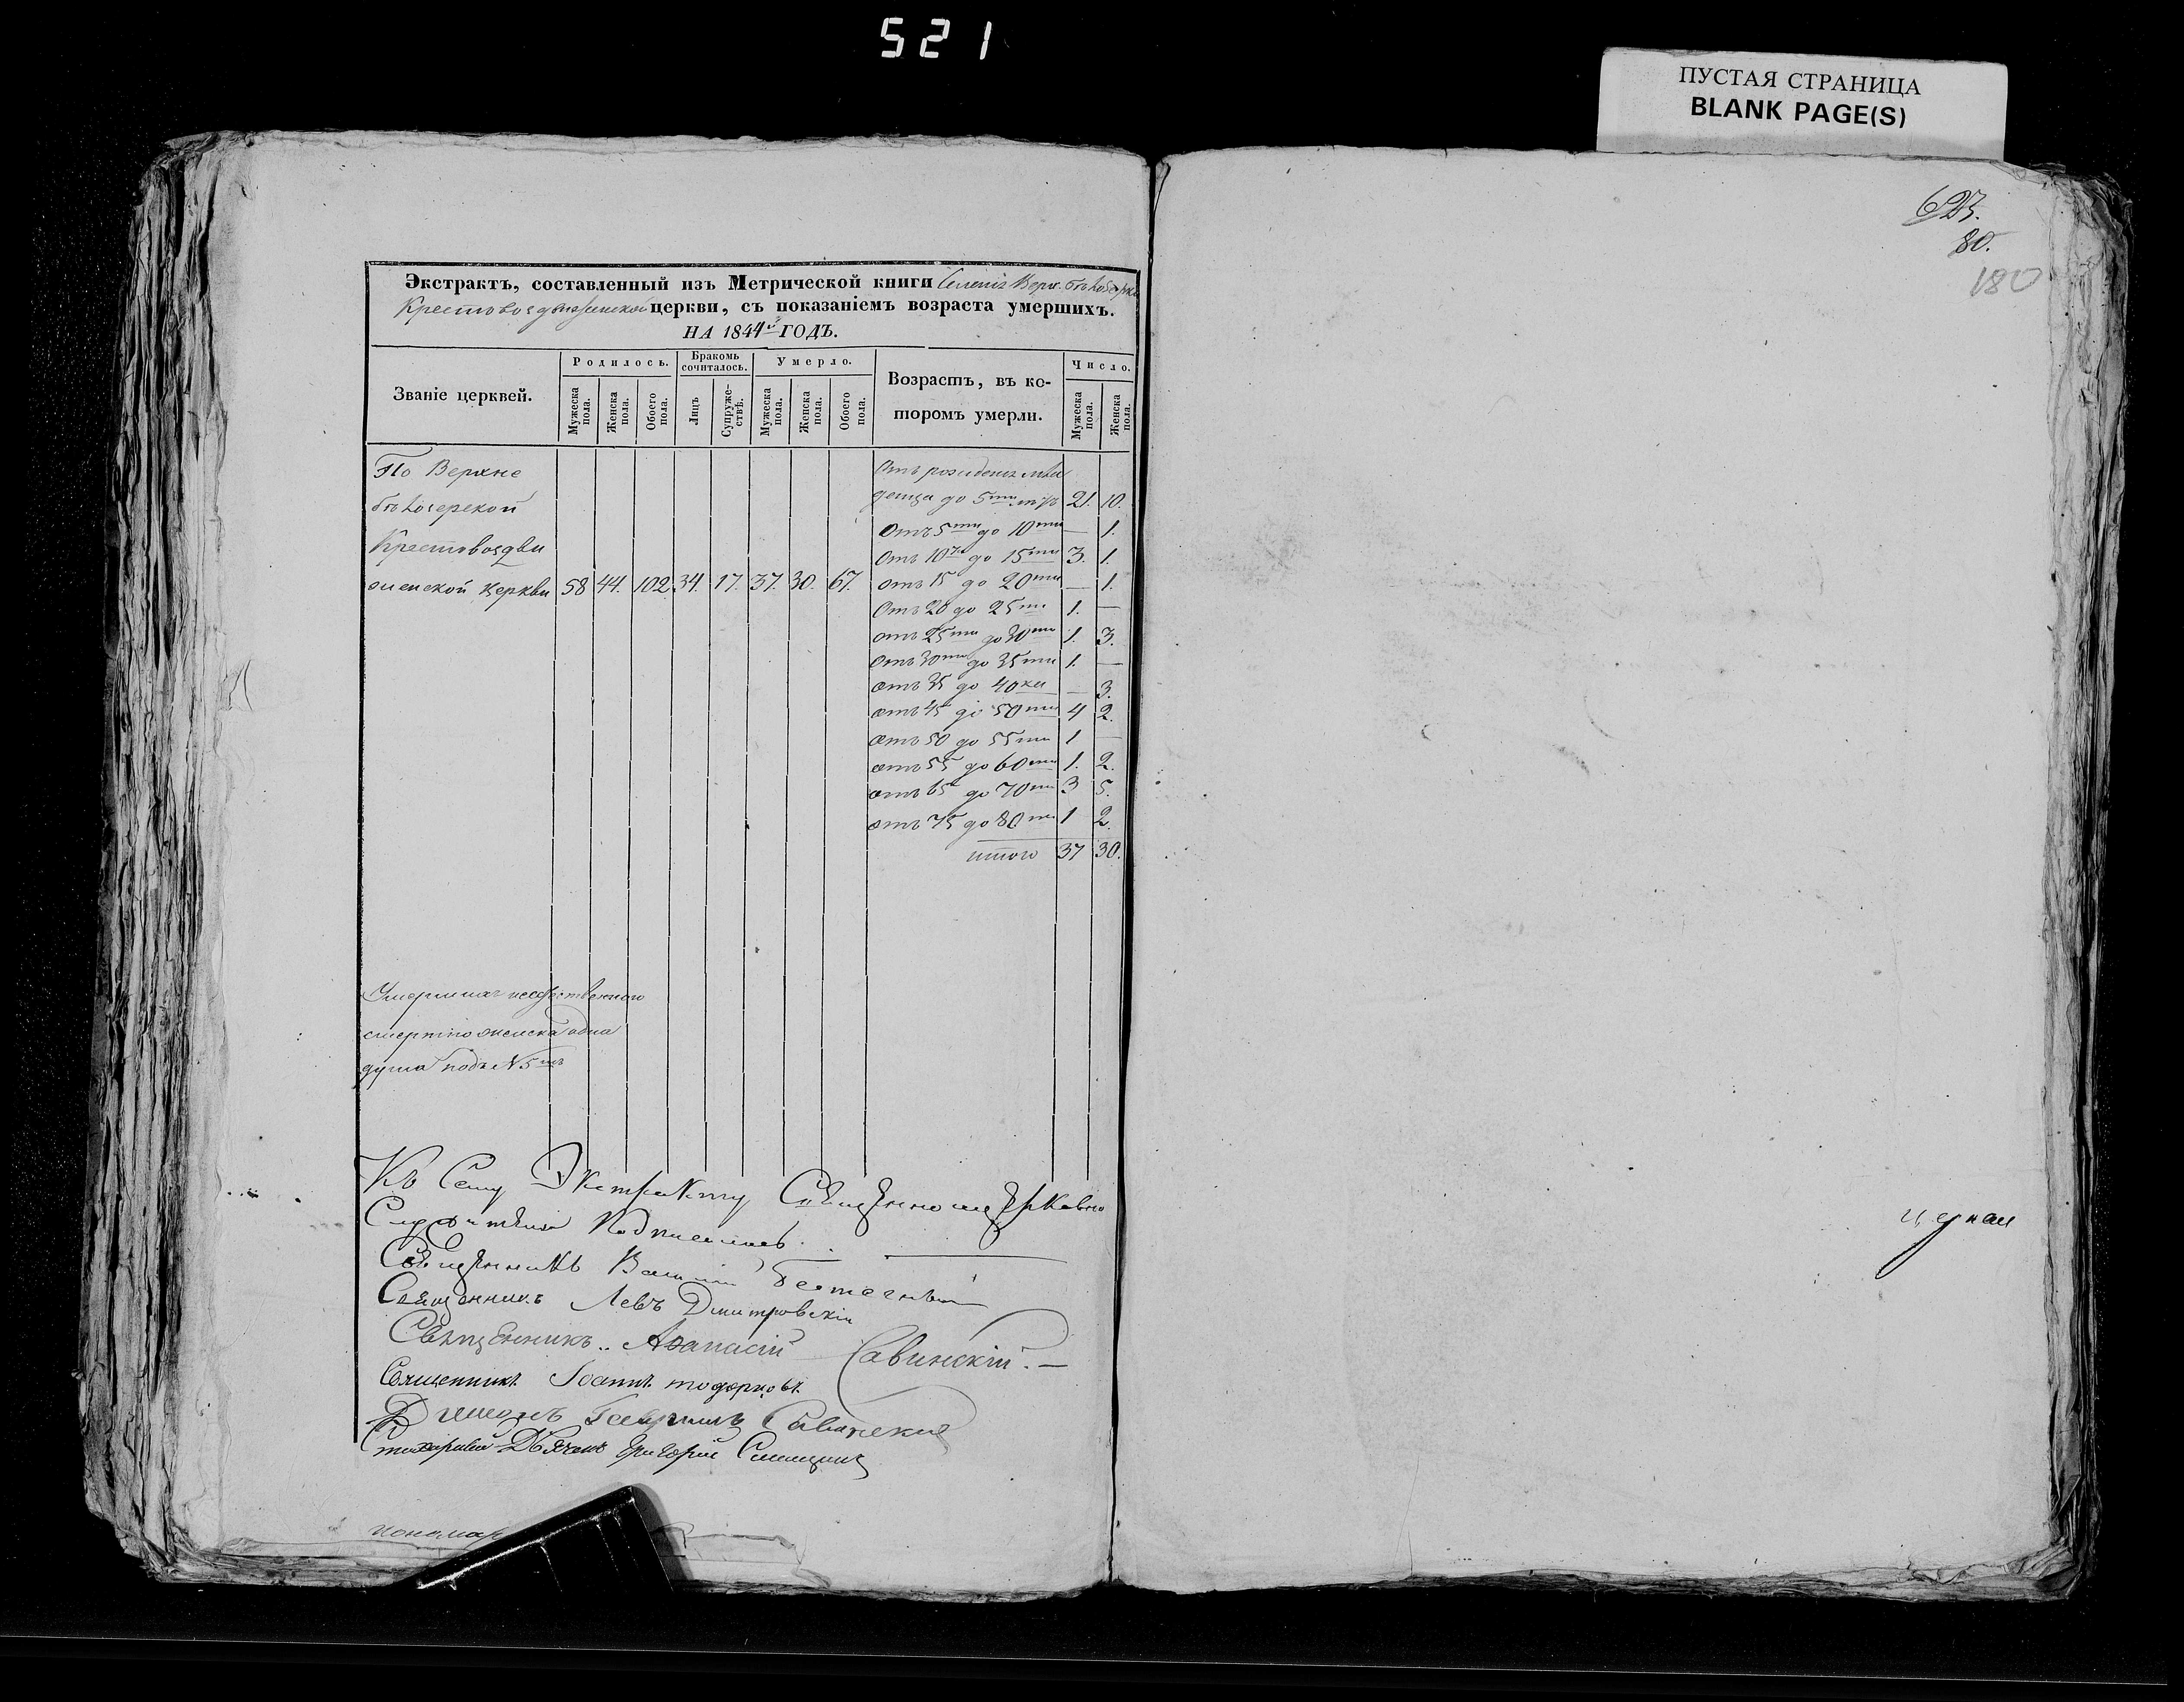 521
ПУСТАЯ СТРАНИЦА
BLANK PAGE(S)
80.
180
Экстрактъ, составленный изъ Метрической книги Селенія Верх. бѣлозерки
Крестовоздвиженской церкви, съ показаніемъ возраста умершихъ.
НА 1844й ГОДЪ.
Званіе церквей.
Родилось.
Бракомъ сочиталось.
Умерло.
Возрастъ, въ которомъ умерли.
Число.
Мужеска пола.
Женска пола.
Обоего пола.
Лицъ
Супружествъ.
Мужеска пола.
Женска пола.
Обоего пола.
Мужеска пола.
Женска пола.
По Верхне
бѣлозерской
Крестовоздви
женской церкви 58 44. 102 34. 17. 37. 30. 67.
Отъ рожденія мла
денца до 5ти лѣтъ 21. 10.
Отъ 5ти до 10ти — 1.
Отъ 10ти до 15ти 3. 1.
отъ 15 до 20ти — 1.
Отъ 20 до 25ти 1. —
отъ 25ти до 30ти 1. 3.
отъ 30ти до 35ти 1. —
отъ 35 до 40ка — 3.
отъ 45 до 50ти 4 2.
отъ 50 до 55ти 1 —
отъ 55 до 60ти 1. 2.
отъ 65 до 70ти 3 5.
отъ 75 до 80ти 1 2.
итого 37 30.
смертію женска одна
душа подъ №5мъ
Къ Сему Экстракту Священноцерковно
Служители Подписались.
Священникъ Василий
Священникъ Левъ Дмитровскій
Священникъ Аѳанасій Савинскій. —
Священникъ Іоаннъ
Діяконъ Гавріилъ Савинский
Дьячекъ Григорій
пономар